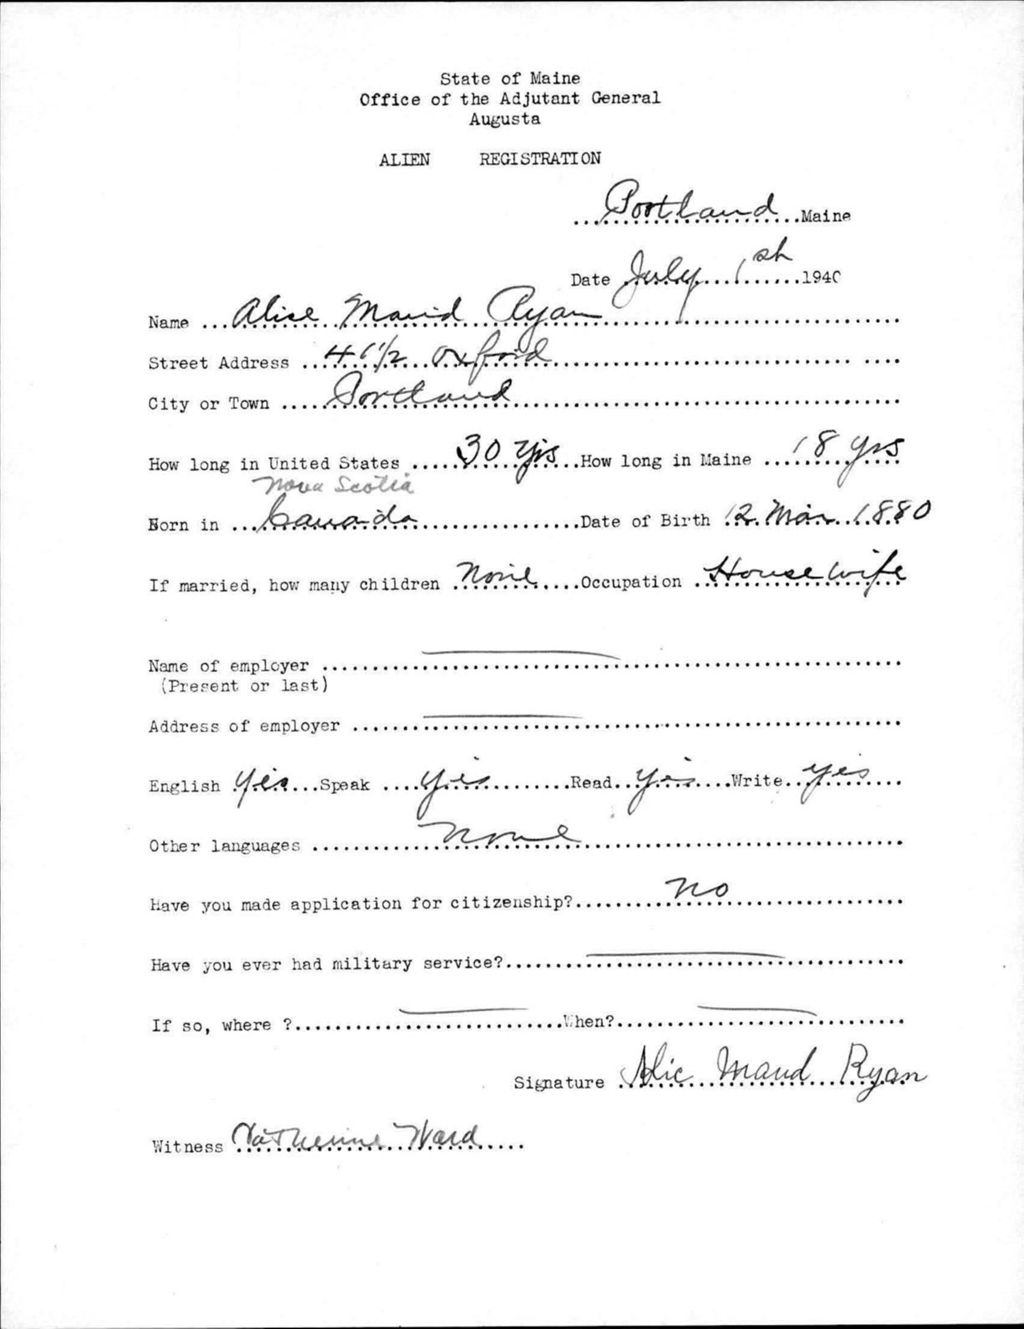 State of Maine
Office of the Adjutant General
Augusta
ALIEN REGISTRATION
Portland Maine
Date July 1st 1940
Name Alise Maud Ryan
Street Address 41 1/2 Oxford
City or Town Portland
How long in United States 30 yrs How long in Maine 18 yrs
Nova Scotia
Born in Canada Date of Birth 12 Mar 1880
If married, how many children None Occupation House Wife
Name of employer
(Present or last)
Address of employer
English Yes Speak Yes Read Yes Write yes
Other languages none
Have you made application for citizenship? no
Have you ever had military service?
If so, where ? When?
Signature Alic Maud Ryan
Witness Catherine Ward